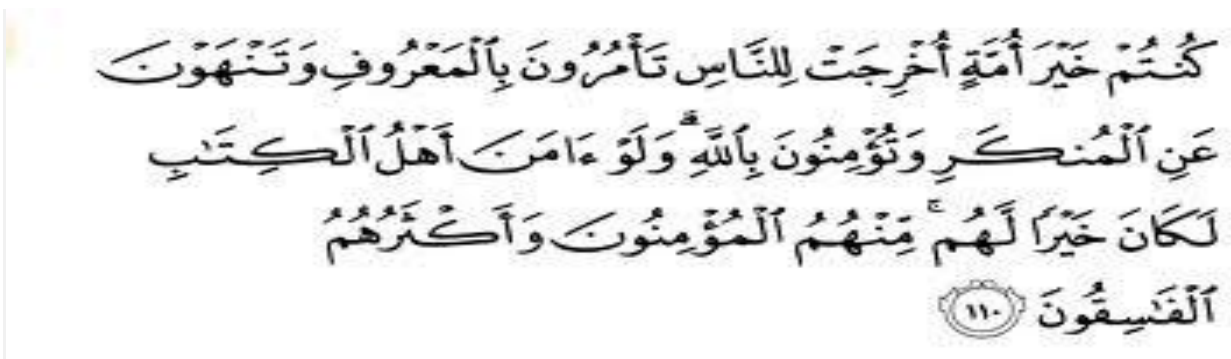 كُنتُمْ خَيْرَ أُمَّةٍ أُخْرِجَتْ لِلنَّاسِ تَأْمُرُونَ بِٱلْمَعْرُوفِ وَتَنْهَوْنَ
عَنِ ٱلْمُنكَرِ وَتُؤْمِنُونَ بِٱللَّهِ ۗ وَلَوْ ءَامَنَ أَهْلُ ٱلْكِتَٰبِ
لَكَانَ خَيْرًا لَّهُم ۚ مِّنْهُمُ ٱلْمُؤْمِنُونَ وَأَكْثَرُهُمُ
ٱلْفَٰسِقُونَ ١١٠